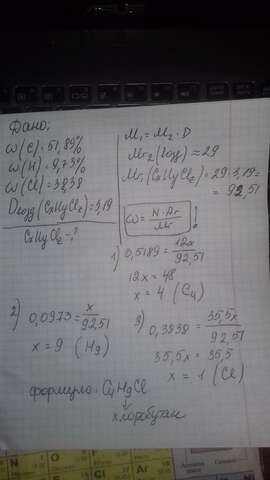 Дано:
ω(C)=51,89%
ω(H)=9,73%
ω(Cl)=38,38
Dвозд(CxHyClz)=3,19
CxHyClz-?
M₁=M₂·D
Mr₂(возд)≈29
Mr₁(CxHyClz)=29·3,19=
=92,51
ω=N·Ar/Mr !
1) 0,5189=12x/92,51
12x=48
x=4 (C₄)
2) 0,0973=x/92,51
x=9 (H₉)
3) 0,3838=35,5x/92,51
35,5x=35,5
x=1 (Cl)
формула: C₄H₉Cl
↓
хлорбутан
Si
Cl
Ar